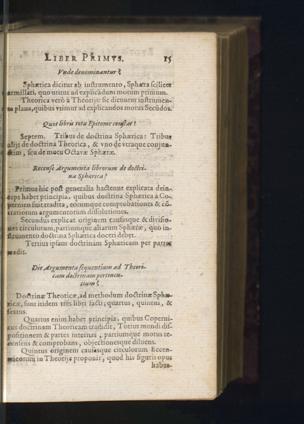 LIBER PRIMVS. 15
Vnde denominantur?
Sphærica dicitur ab instrumento, Sphæra scilicet
armillari, quo utimur ad explicandum motum primum.
Theorica verò à Theorijs sic dicuntur instrumen-
ta plana, quibus vtimur ad explicandos motus Secūdos.
Quot libris tota Epitome constat?
Septem. Tribus de doctrina Sphærica: Tribus
alijs de doctrina Theorica, & vno de vtraque conjun-
ctim, seu de motu Octavæ Sphæræ.
Recense Argumenta librorum de doctri-
na Sphærica?
Primus hic post generalia hactenus explicata dein-
ceps habet principia, quibus doctrina Sphærica à Co-
pernico fuit tradita, eorumque comprobationes &
contrariorum argumentorum dissolutiones.
Secundus explicat originem causasque & divisio-
nes circulorum, partiumque aliarum Sphæræ, quo in-
strumento doctrina Sphærica doceri debet.
Tertius ipsam doctrinam Sphæricam per partes
tradit.
Dic Argumenta sequentium ad Theori-
cam doctrinam pertinen-
tium?
Doctrinæ Theoricæ, ad methodum doctrinæ Sphæ-
ricæ, sunt itidem tres libri facti; quartus, quintus, &
sextus.
Quartus enim habet principia, quibus Coperni-
cus doctrinam Theoricam tradidit, Totius mundi dis-
positionem & partes
censens & comprobans, objectionesque diluens.
Quintus originem causasque circulorum Eccen-
tricorum in Theorijs proponit, quod his figuris opus
habea-